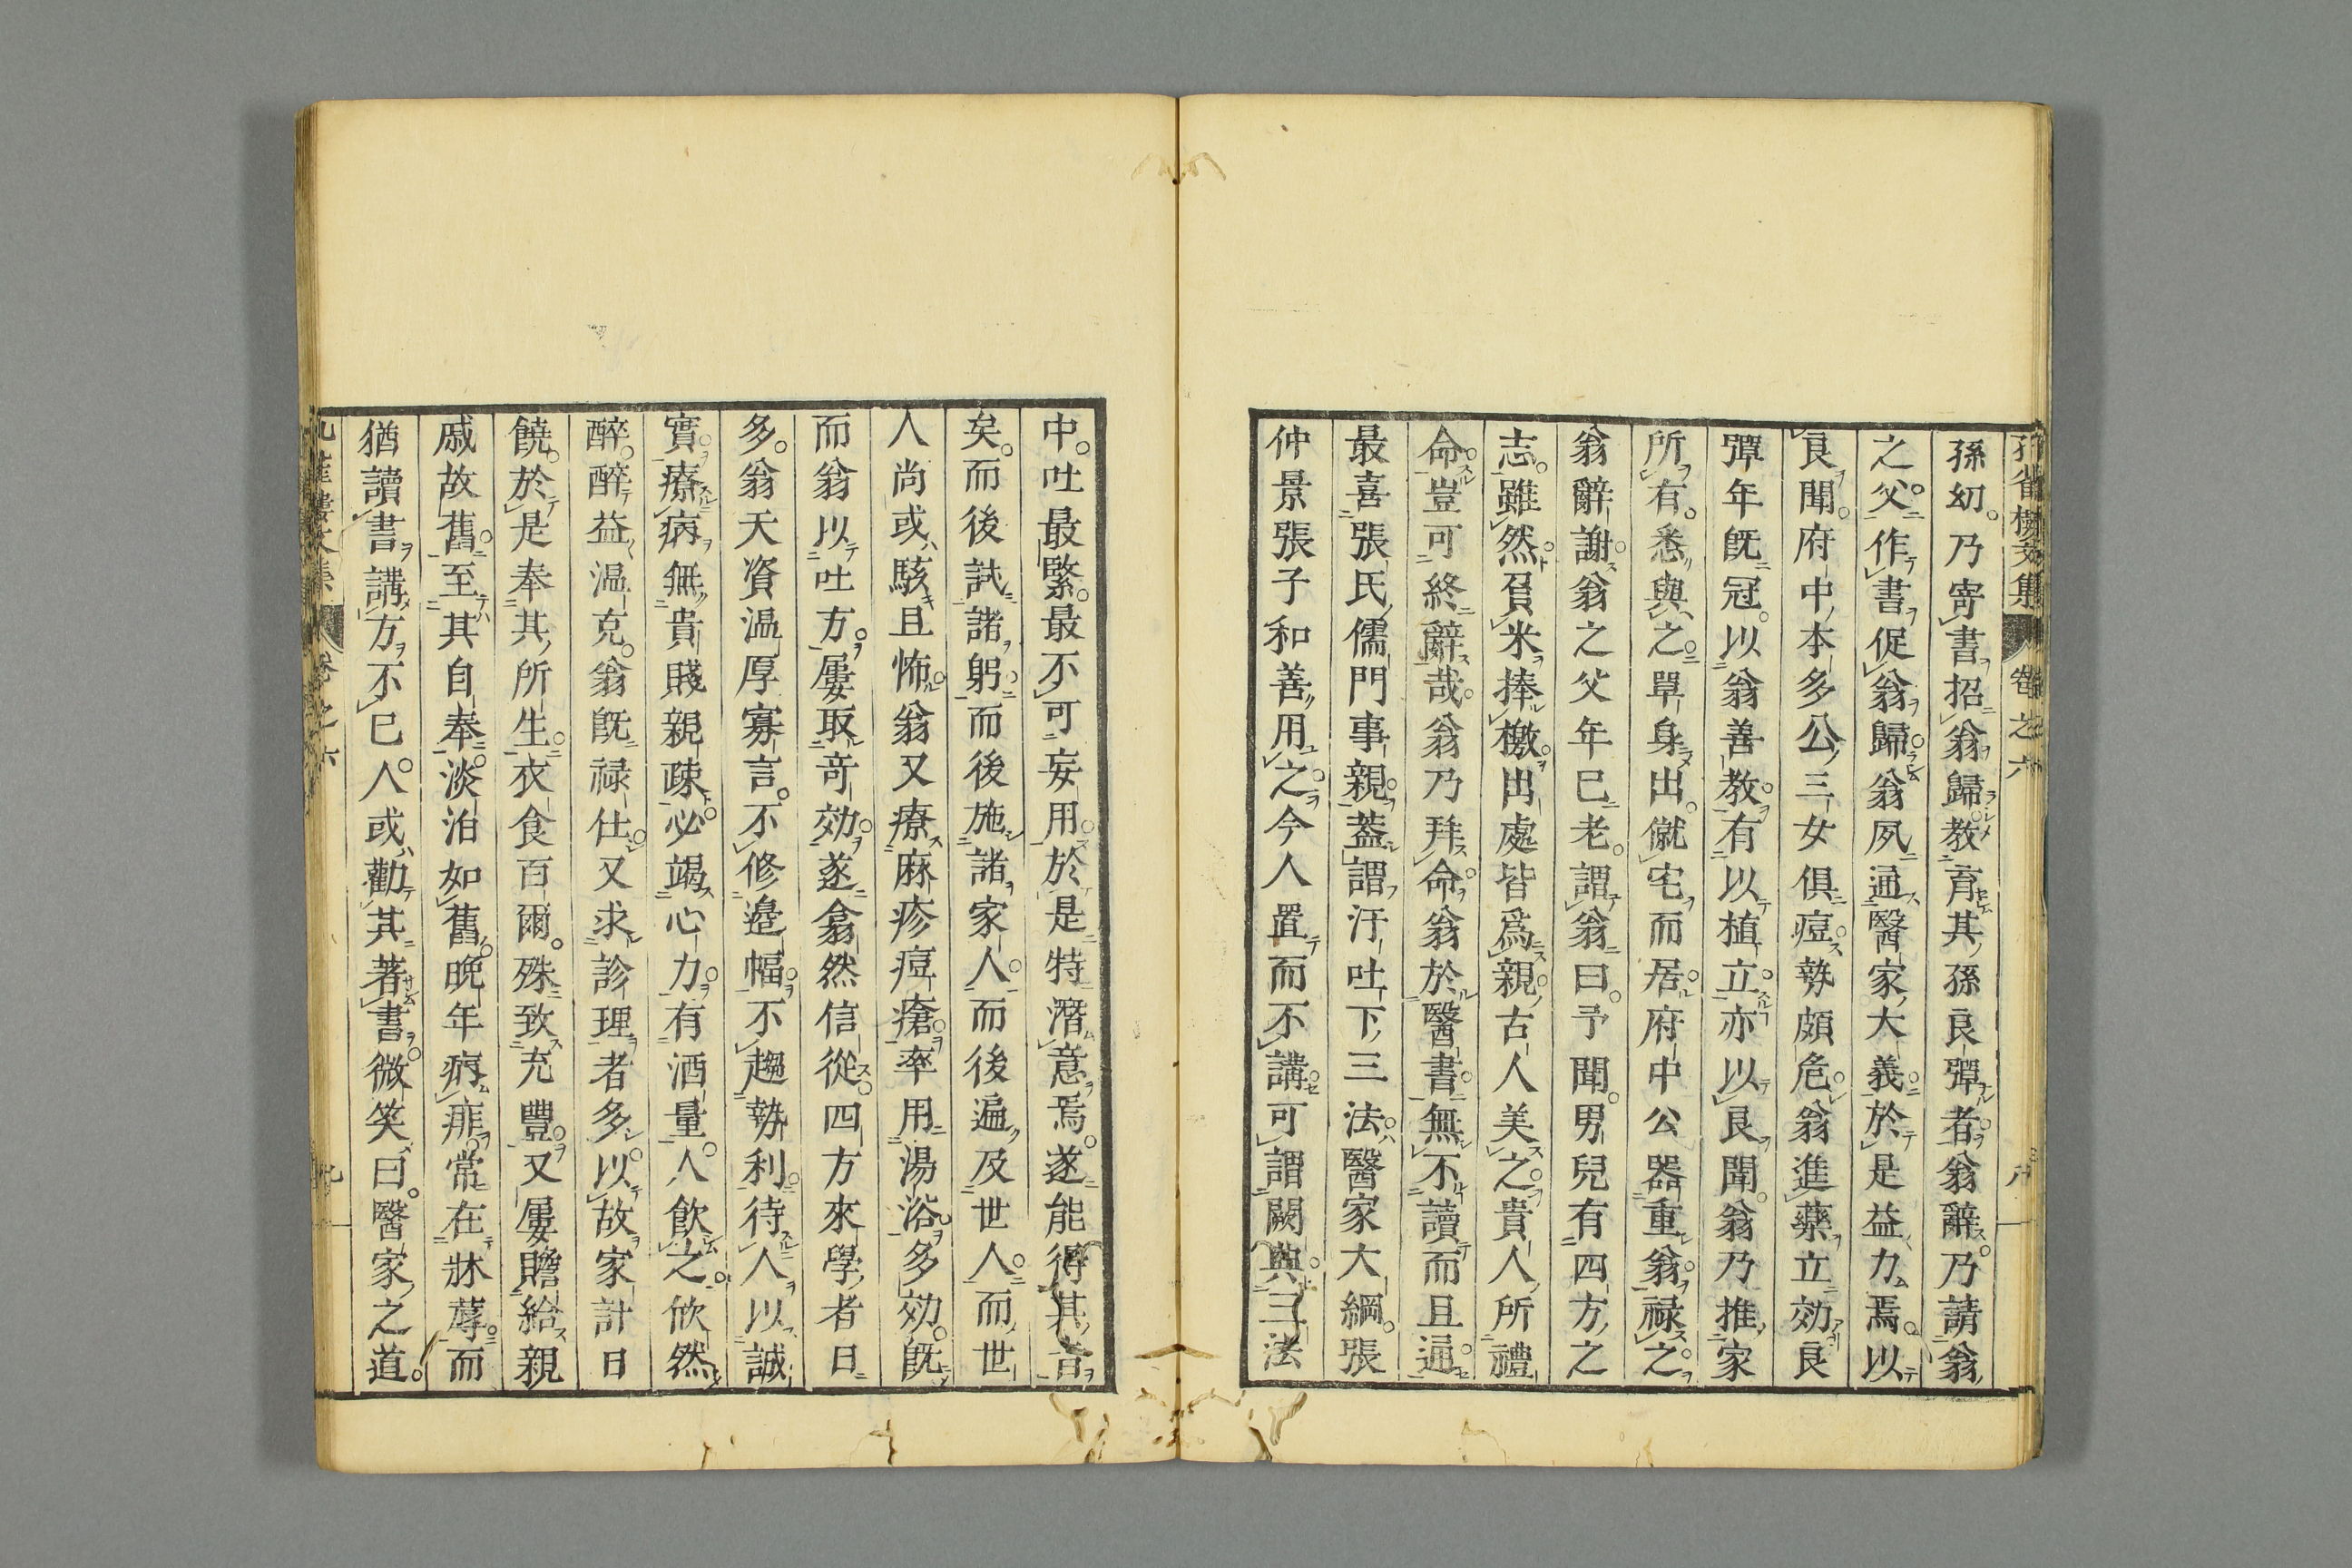 孫幼乃寄書招翁歸教育其孫良彈者翁辭乃請翁
之父作書促翁歸翁夙通醫家大義於是益力焉以
良聞府中本多公三女俱痘勢頗危翁進藥立効良
彈年旣冠以翁善教有以植立亦以良聞翁乃推家
所有悉與之單身出僦宅而居府中公器重翁祿之
翁辭謝翁之父年已老謂翁曰予聞男兒有四方之
志雖然負米捧檄出處皆爲親古人美之貴人所禮
命豈可終辭哉翁乃拜命翁於醫書無不讀而且通
最喜張氏儒門事親蓋謂汗吐下三法醫家大綱張
仲景張子和善用之今人置而不講可謂闕典三法
卷之六
中吐最緊最不可妄用於是特潛意焉遂能得其旨
矣而後試諸躬而後施諸家人而後遍及世人而世
人尚或駭且怖翁又療麻疹痘瘡率用湯浴多効旣
而翁以吐方屢取奇効遂翕然信從四方來學者日
多翁天資溫厚寡言不修邉幅不趨勢利待人以誠
實療病無貴賤親疎必竭心力有酒量人飮之欣然
醉醉益溫克翁旣祿仕又求診理者多以故家計日
饒於是奉其所生衣食百爾殊致充豐又屢贍給親
戚故舊至其自奉淡泊如舊晚年病痱常在牀蓐而
猶讀書講方不已人或勸其著書微笑曰醫家之道
卷之六
九